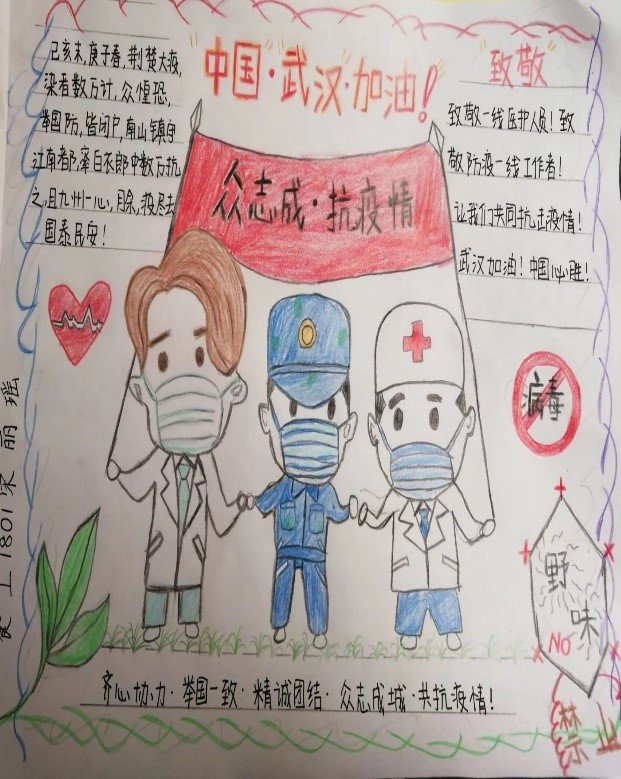 "中国"·"武汉"·加油!
己亥末,庚子春,荆楚大疫,
染者数万计,众惶恐,
举国防,皆闭户,南山镇守
江南都,率白衣郎中数万抗
之,且九州一心,月余,疫尽去
国泰民安!
"致敬"
致敬一线医护人员!致
敬防疫一线工作者!
让我们共同抗击疫情!
武汉加油!中国必胜!
众志成·抗疫情
病毒
野
味
NO
禁止
1801宋丽瑶
齐心协力·举国一致·精诚团结·众志成城·共抗疫情!